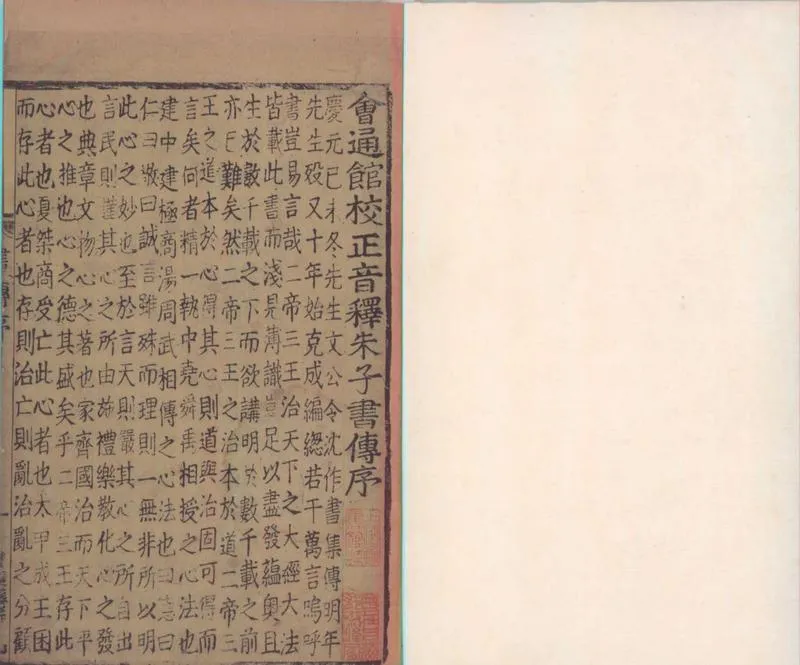 會通館校正音釋朱子書傳序
慶元己未冬先生文公令沈作書集傳明年
先生歿又十年始克成編總若干萬言嗚呼
書豈易言哉二帝三王治天下之大經大法
皆載此書而淺見薄識豈足以盡發蘊奧且
生於數千載之下而欲講明於數千載之前
亦已難矣然二帝三王之治本於道二帝三
王之道本於心得其心則道與治固可得而
言矣何者精一執中堯舜禹相授之心法也
建中建極商湯周武相傳之心法也曰德曰
仁曰敬曰誠言雖殊而理則一無非所以明
此心之妙也至於言天則嚴其心之所自出
言民則謹其心之所由施禮樂教化心之發
也典章文物心之著也家齊國治而天下平
心之推也心之德其盛矣乎二帝三王存此
心者也夏桀商受亡此心者也太甲成王困
而存此心者也存則治亡則亂治亂之分顧
書傳序